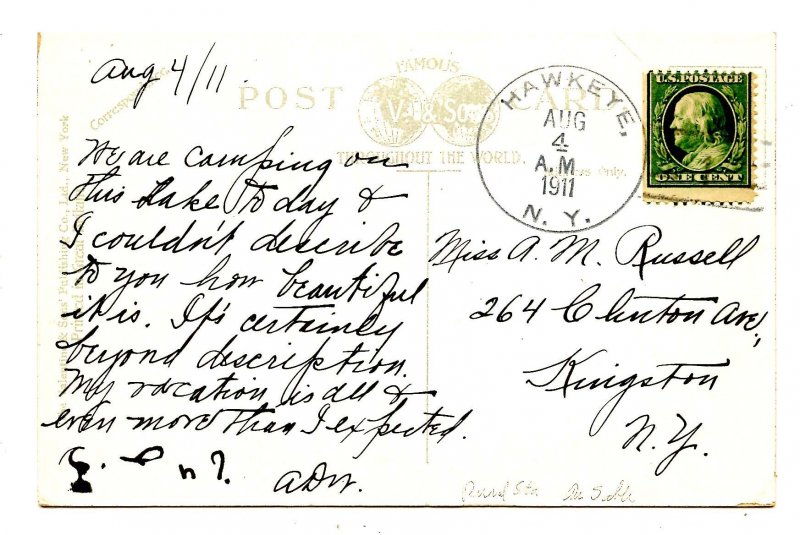 Aug 4/11.
Correspondence
FAMOUS
POST CARD
V & Sons
THROUGHOUT THE WORLD.
Only.
HAWKEYE,
AUG
4
A.M
1911
N. Y.
U.S. POSTAGE
ONE CENT
We are camping on
this lake to day &
I couldn't describe
to you how beautiful
it is. It's certainly
beyond description.
My vacation is all &
even more than I expected.
ADW.
Miss A. M. Russell
264 Clinton Ave,
Kingston
N.Y.
Sons' Publishing Co., Ltd., New York
Rural Sta